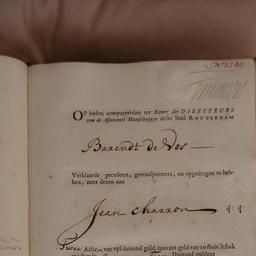 No 2289
OP heden compareerden ter Kamer der DIRECTEURS
van de Assurantie Maatschappye deser Stad ROTTERDAM
Barendt de Vos —
Verklaarde gecedeert, getransporteert, en opgedragen te heb-
ben, mits desen aan
Jean Charron
Twee Actien van vijf duisend guld. courant geld van 20 stuiv. 't stuk